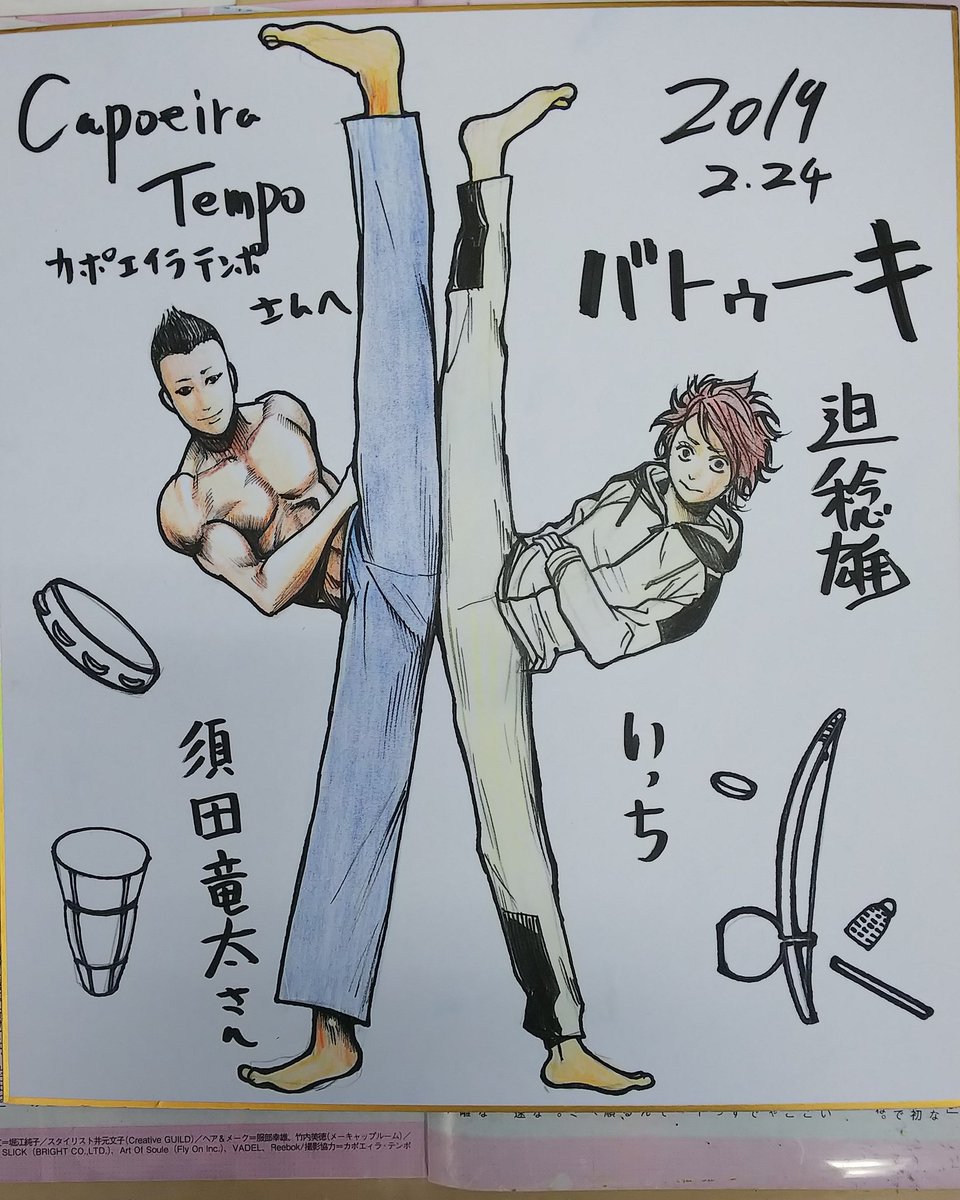 Capoeira
Tempo
カポエイラテンポ
さんへ
2019
2.24
バトゥーキ
迫稔雄
いっち
須田竜太さん
=堀江純子/スタイリスト井元文子(Creative GUILD)/ヘア&メーク=服部幸雄、竹内美徳(メーキャップルーム)/
SLICK(BRIGHT CO.,LTD.)、Art Of Soule(Fly On Inc.)、VADEL、Reebok/撮影協力=カポエイラ・テンポ